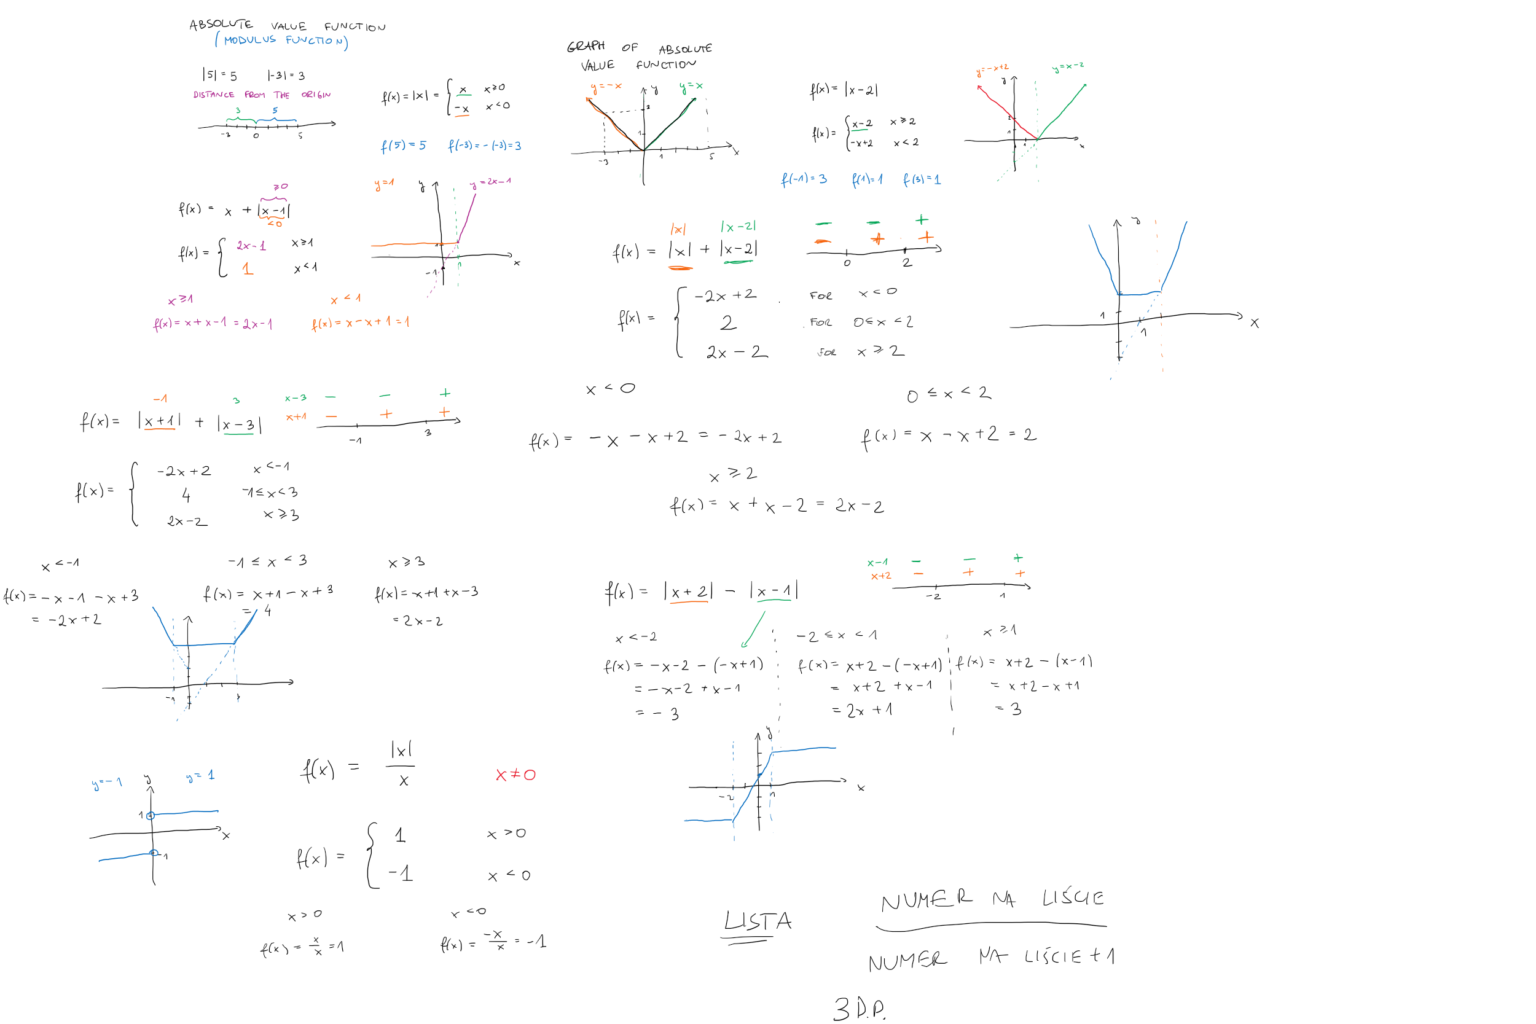 ABSOLUTE VALUE FUNCTION
(MODULUS FUNCTION)
|5| = 5 |-3| = 3
DISTANCE FROM THE ORIGIN
3 5
-3 0 5
f(x) = |x| = { x x≥0
-x x<0
f(5) = 5 f(-3) = -(-3) = 3
GRAPH OF ABSOLUTE
VALUE FUNCTION
y=-x y y=x
3
1
-3 1 5 x
f(x) = |x-2|
f(x) = { x-2 x≥2
-x+2 x<2
f(-1) = 3 f(1) = 1 f(3) = 1
y=-x+2 y=x-2
y
x
≥0
f(x) = x + |x-1|
<0
f(x) = { 2x-1 x≥1
1 x<1
x≥1
f(x) = x+x-1 = 2x-1
x<1
f(x) = x-x+1 = 1
y=1 y y=2x-1
-1 1 x
|x| |x-2|
f(x) = |x| + |x-2|
- - +
- + +
0 2
f(x) = { -2x+2 FOR x<0
2 FOR 0≤x<2
2x-2 FOR x≥2
y
1
1 x
x<0
f(x) = -x-x+2 = -2x+2
0≤x<2
f(x) = x-x+2 = 2
x≥2
f(x) = x+x-2 = 2x-2
-1 3
f(x) = |x+1| + |x-3|
x-3 - - +
x+1 - + +
-1 3
f(x) = { -2x+2 x<-1
4 -1≤x<3
2x-2 x≥3
x<-1
f(x) = -x-1-x+3
= -2x+2
-1≤x<3
f(x) = x+1-x+3
= 4
x≥3
f(x) = x+1+x-3
= 2x-2
-1
f(x) = |x+2| - |x-1|
x-1 - - +
x+2 - + +
-2 1
x<-2
f(x) = -x-2-(-x+1)
= -x-2+x-1
= -3
-2≤x<1
f(x) = x+2-(-x+1)
= x+2+x-1
= 2x+1
x≥1
f(x) = x+2-(x-1)
= x+2-x+1
= 3
y
-2 1 x
y=-1 y y=1
1
x
-1
f(x) = |x|/x x≠0
f(x) = { 1 x>0
-1 x<0
x>0
f(x) = x/x = 1
x<0
f(x) = -x/x = -1
LISTA
NUMER NA LIŚCIE
NUMER NA LIŚCIE+1
3 D.P.